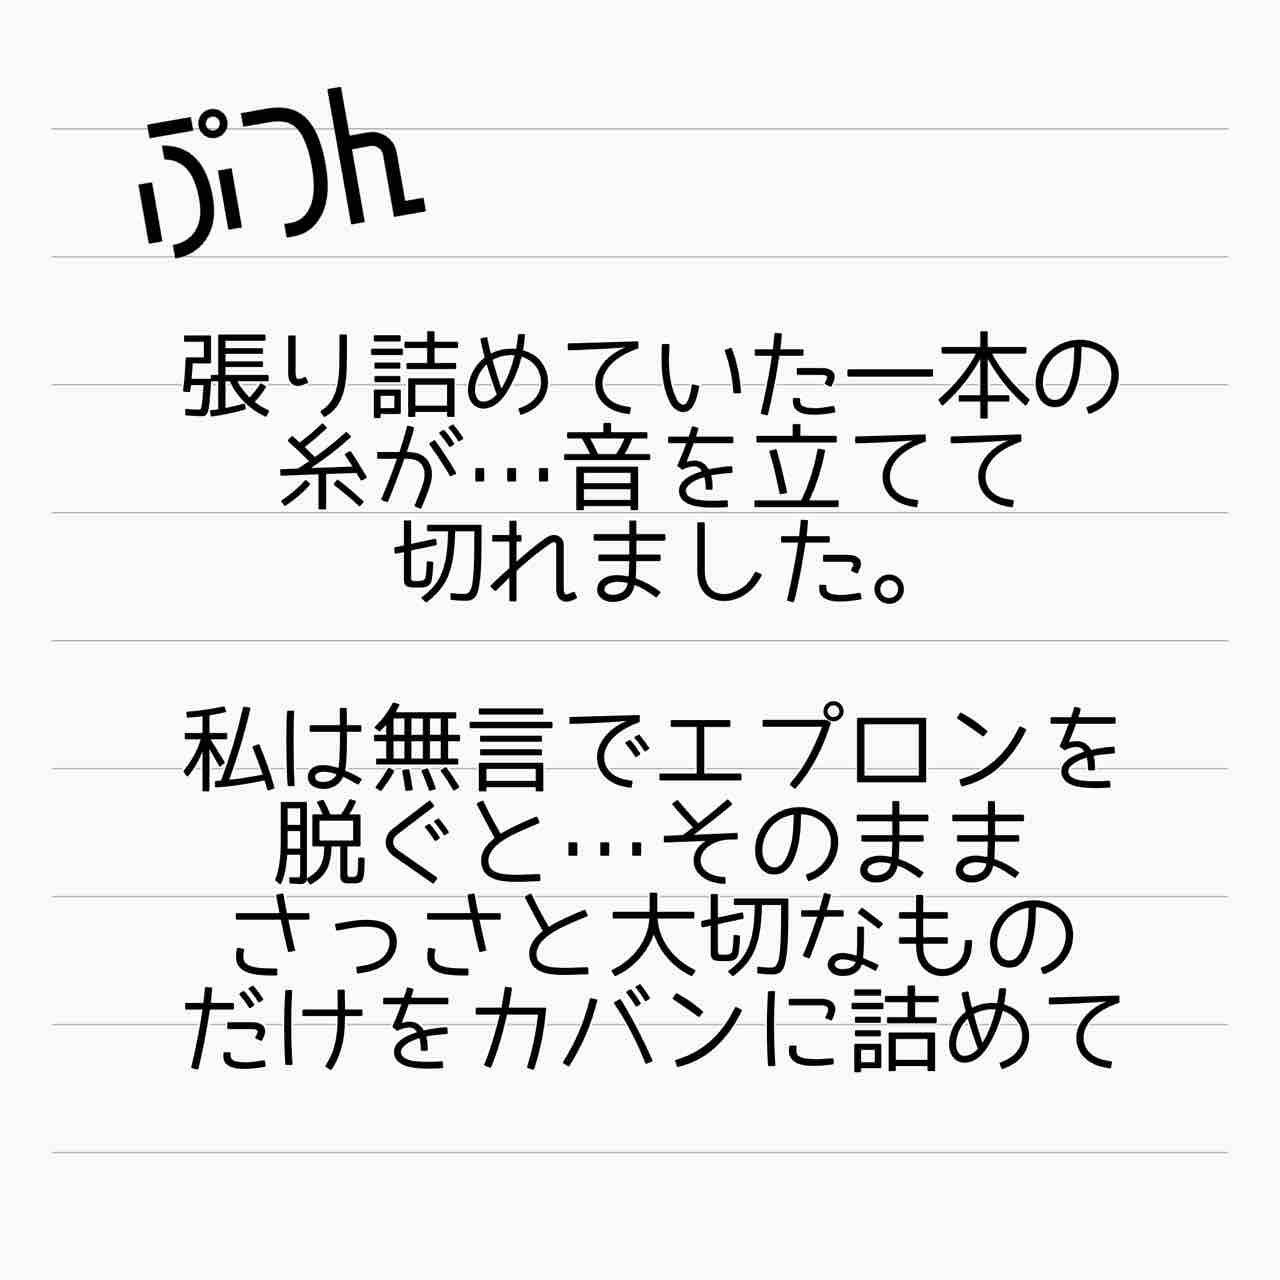 ぷつん
張り詰めていた一本の
糸が…音を立てて
切れました。
私は無言でエプロンを
脱ぐと…そのまま
さっさと大切なもの
だけをカバンに詰めて